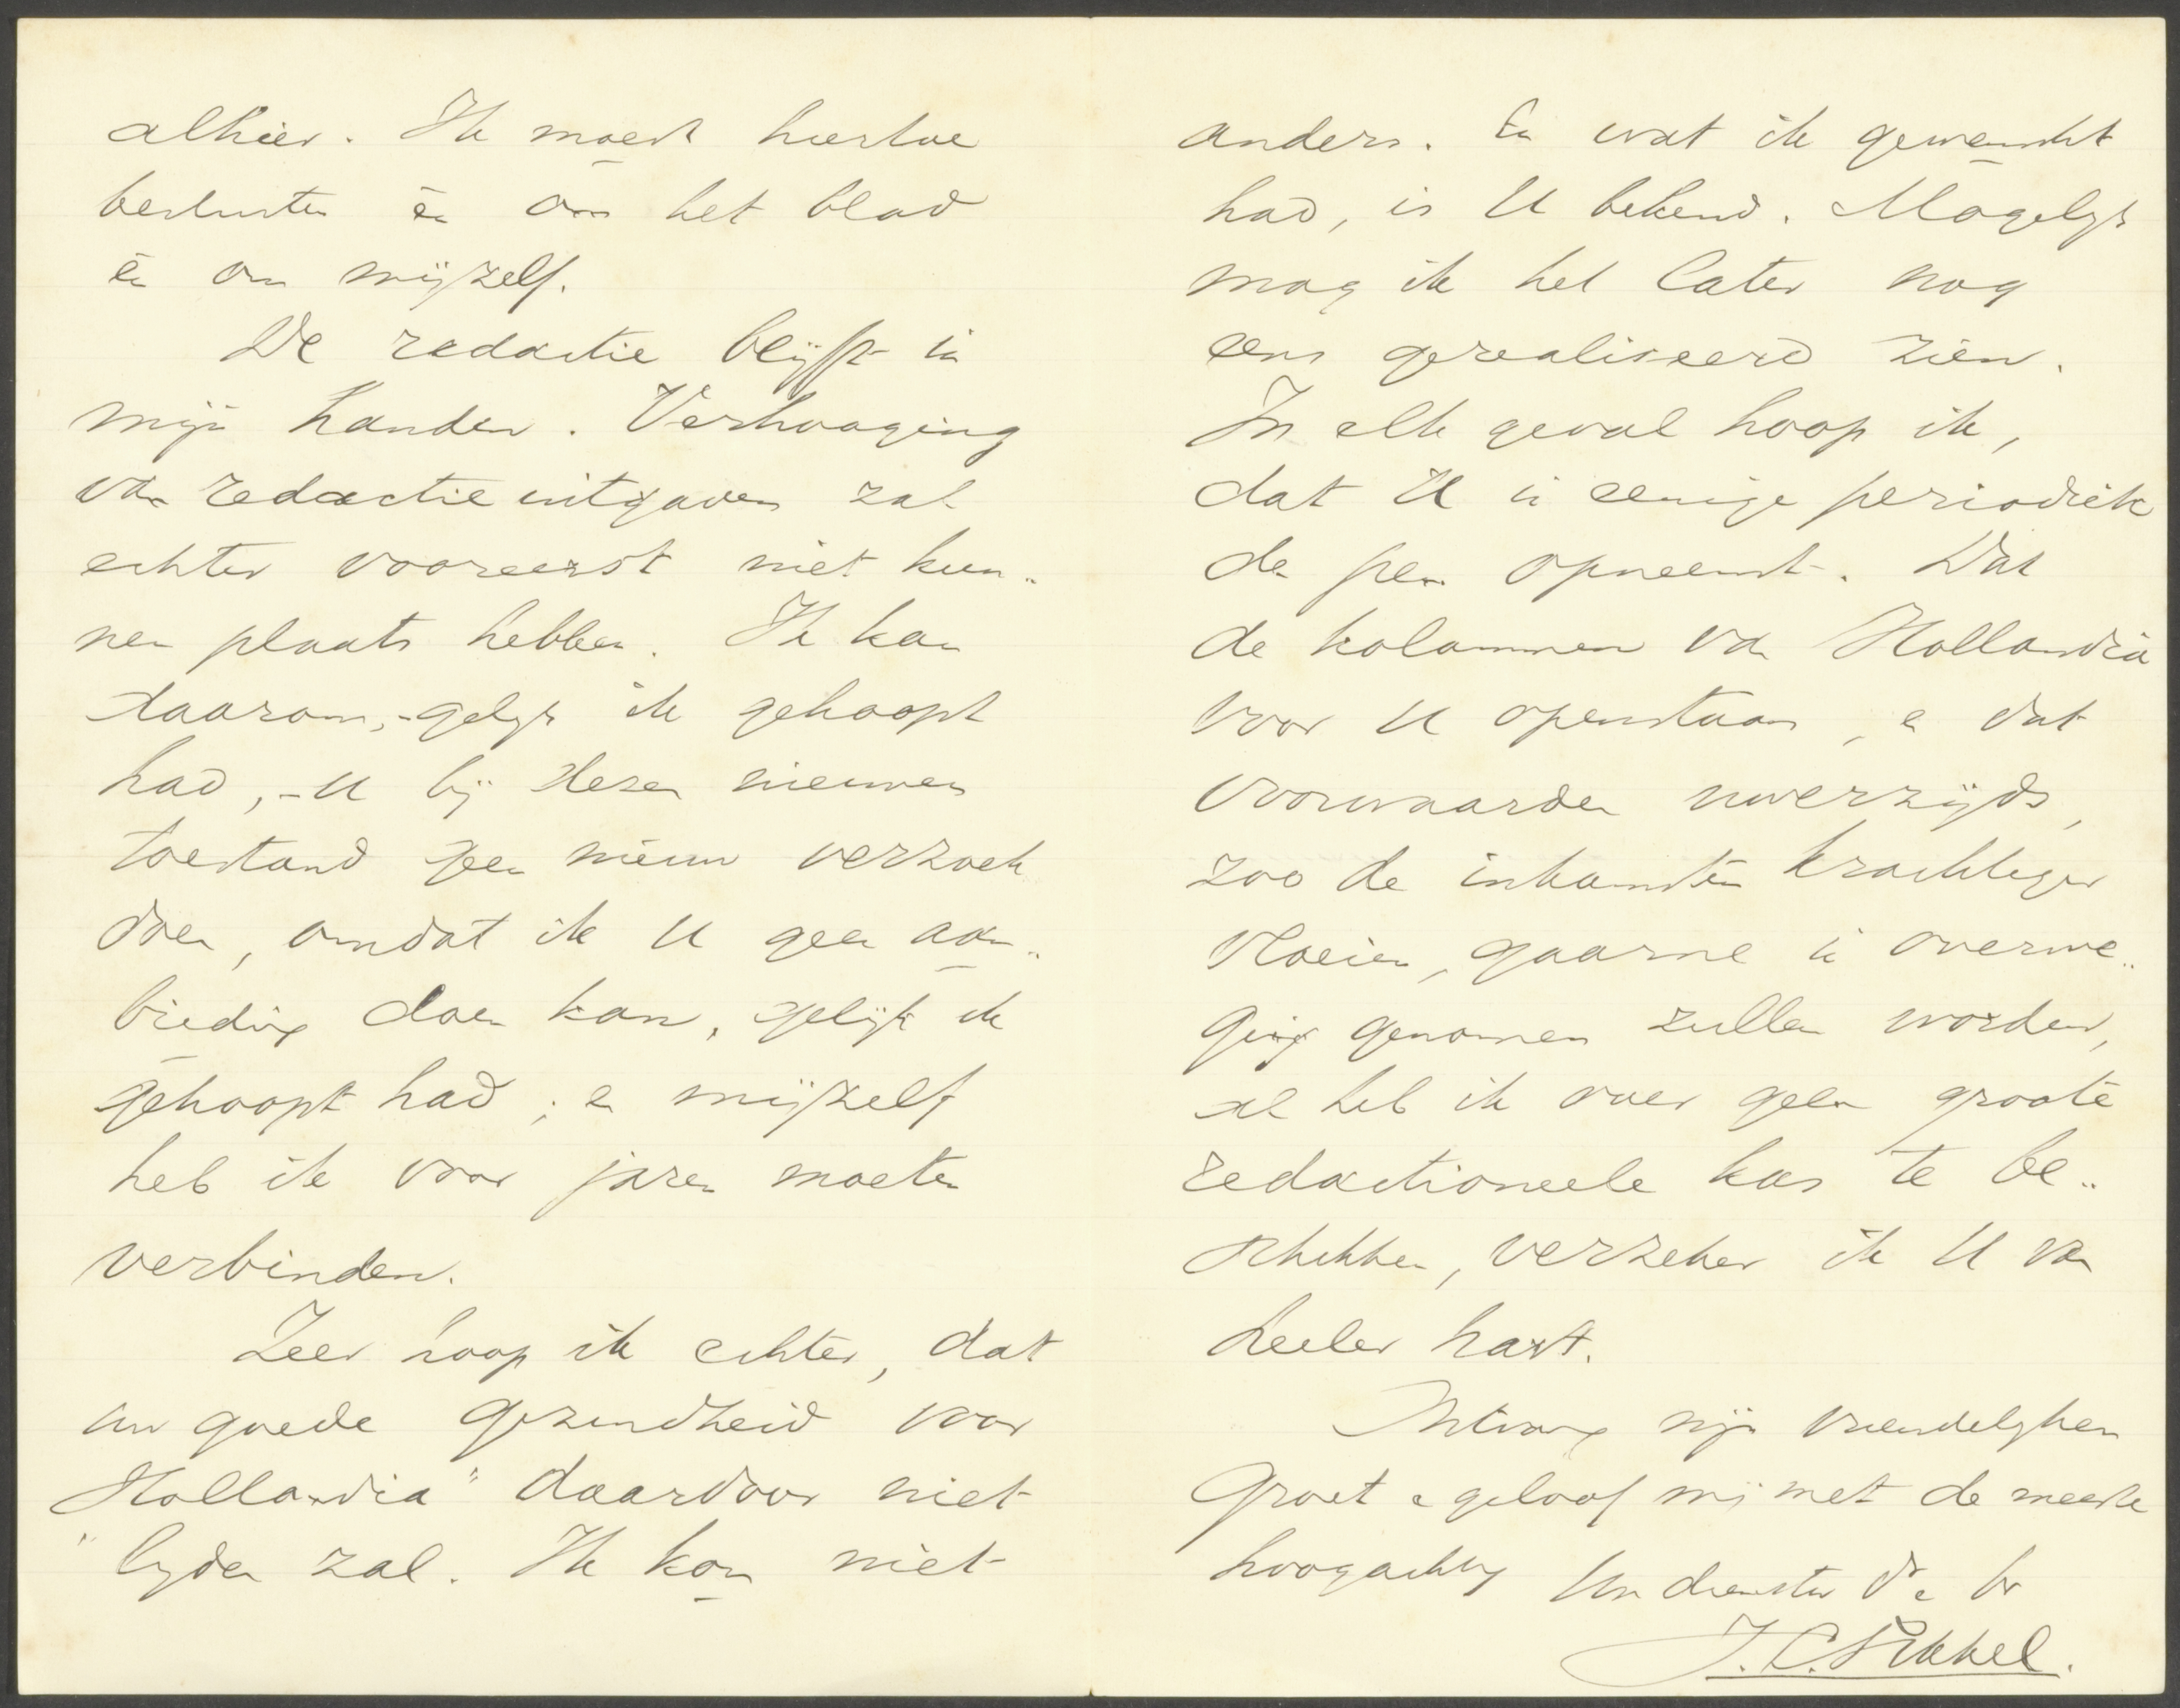 alhier. Ik moest hiertoe
besluiten èn om het blad
èn om mijzelf.
De redactie blijft in
mijn handen. Verhooging
van redactieuitgaven zal
echter vooreerst niet kun„
nen plaats hebben. Ik kan
daarom, - gelijk ik gehoopt
had, - U bij dezen nieuwen
toestand geen nieuw verzoek
doen, omdat ik U geen aan„
bieding doen kan, gelijk ik
gehoopt had; en mijzelf
heb ik voor jaren moeten
verbinden.
Zeer hoop ik echter, dat
uw goede gezindheid voor
„Hollandia" daardoor niet
lijden zal. Ik kon niet
anders. En wat ik gewenscht
had, is U bekend. Mogelijk
mag ik het later nog
eens gerealiseerd zien.
In elk geval hoop ik,
dat U in eenige periodiek
de pen opneemt. Dat
de kolommen van Hollandia
voor U openstaan, en dat
voorwaarden uwerzijds,
zoo de inkomsten krachtiger
vloeien, gaarne in overwe„
ging genomen zullen worden,
al heb ik over geen groote
redactioneele kas te be„
schikken, verzeker ik U van
heeler hart.
Ontvang mijn vriendelijken
groet en geloof mij met de meeste
hoogachting Uw dienstw. dr. en br
J. C. Sikkel.